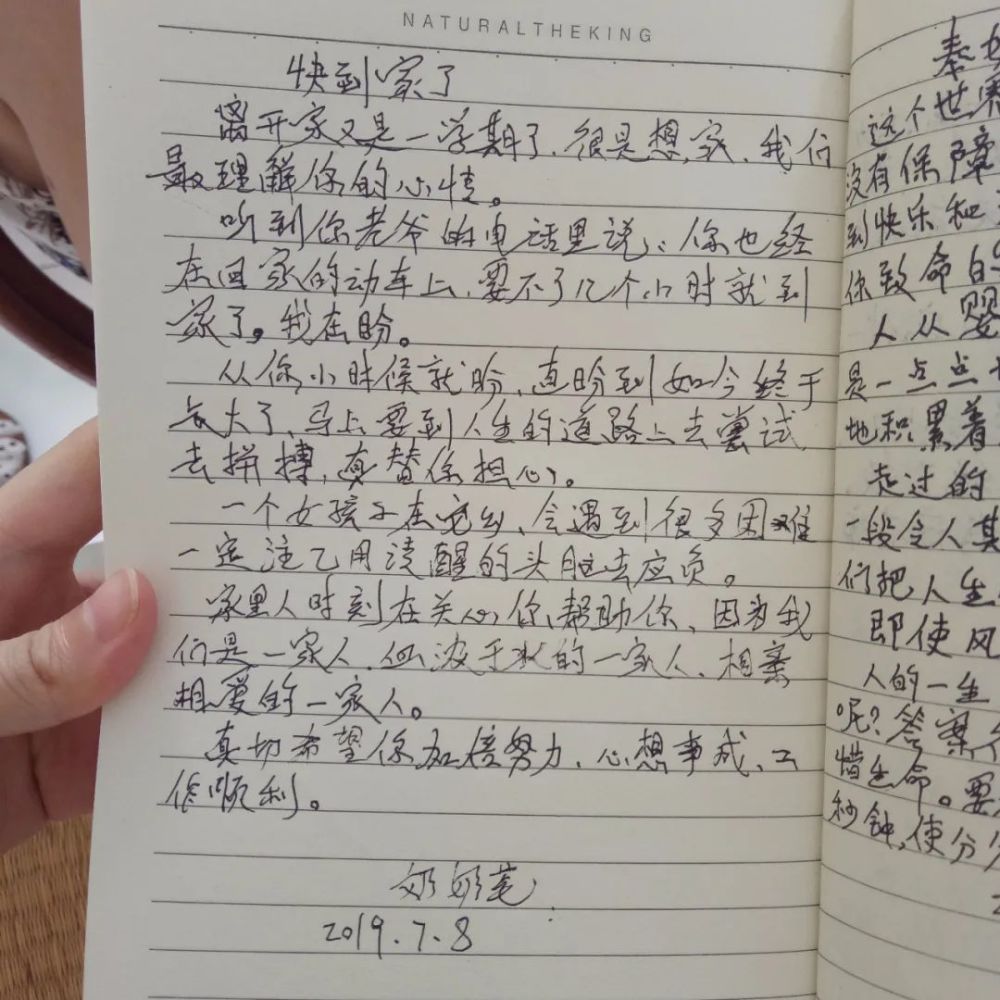 NATURALTHEKING
快到家了
离开家又是一学期了、很是想家、我们
最理解你的心情。
听到你老爷的电话里说：你也经
在回家的动车上、要不了几个小时就到
家了。我在盼。
从你小时候就盼、直盼到如今终于
长大了、马上要到人生的道路上去尝试、
去拼搏，真替你担心。
一个女孩子在完全、会遇到很多困难
一定注乙用清醒的头脑去应负。
家里人时刻在关心你、帮助你、因为我
们是一家人、血浓于水的一家人、相亲
相爱的一家人。
真切希望你加倍努力、心想事成、工
作顺利。
奶奶笔
2019.7.8
奉
这个世界
没有保障
到快乐和
你致命的
人从婴
是一点点
地积累着
走过的
一段令人其
们把人生
即使风
人的一生
呢？答案
惜生命。要
秒钟，使分分